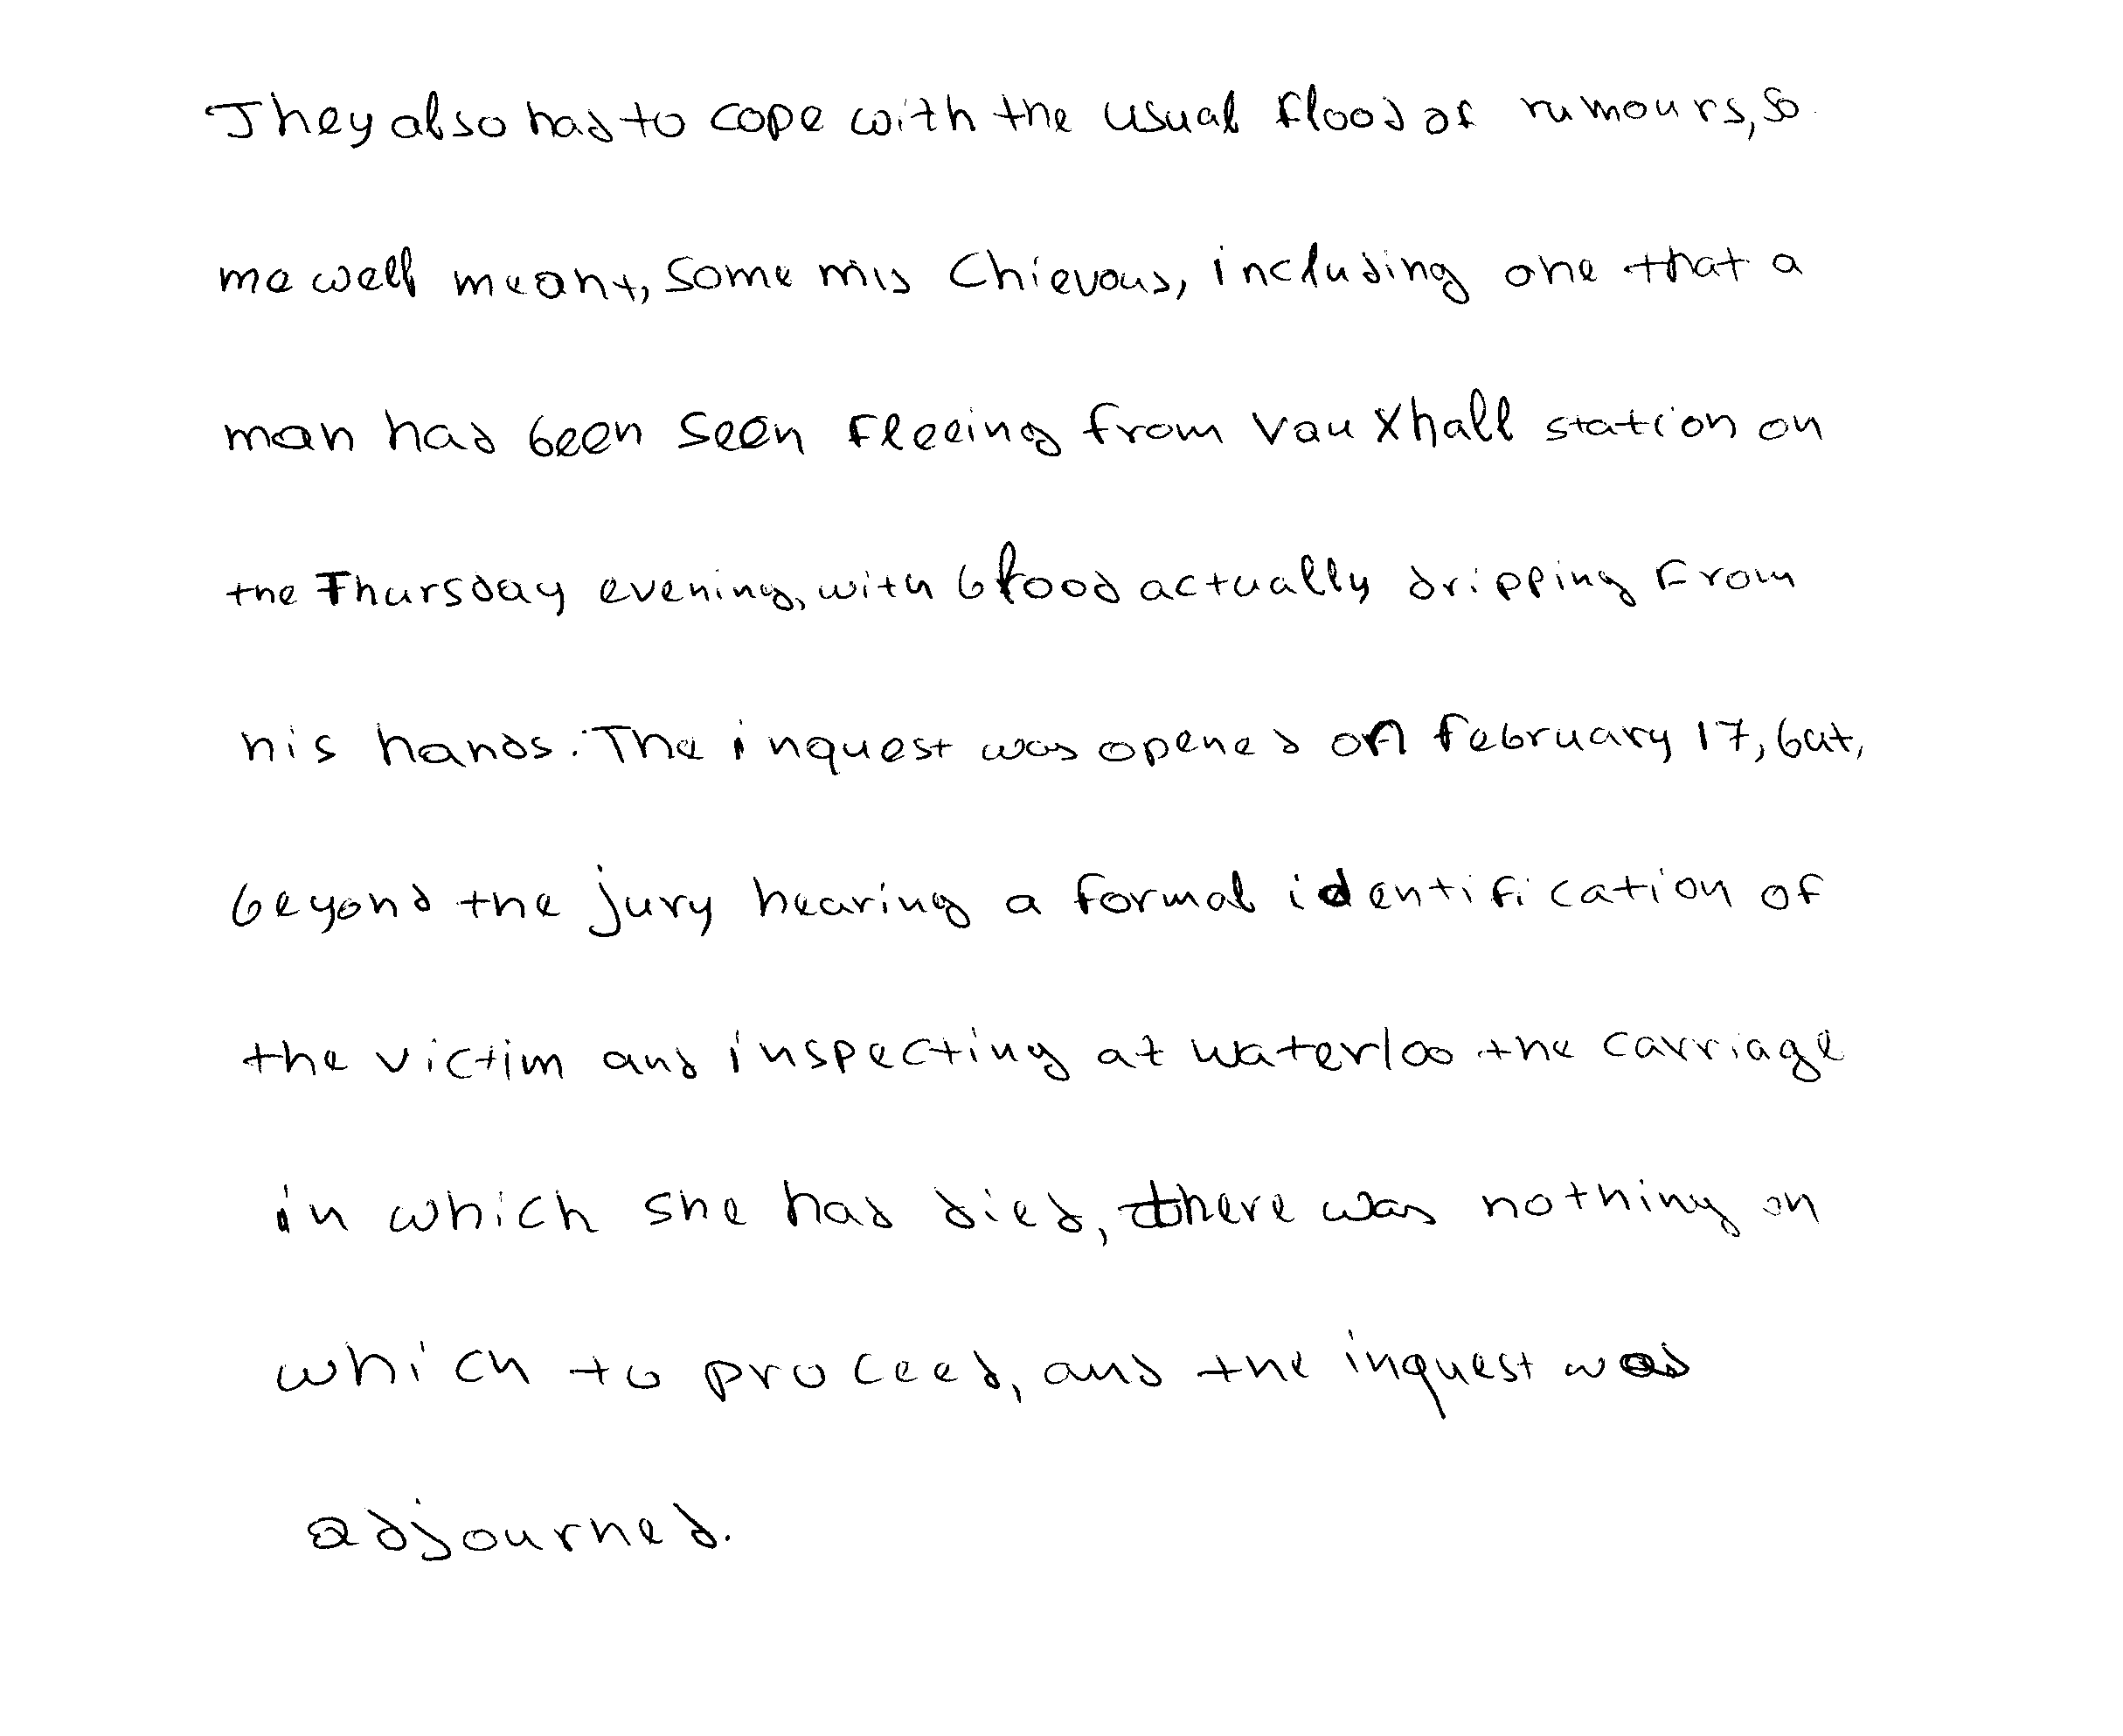 They also had to cope with the usual flood of rumours, so
me well meant, some mis chievous, including one that a
man had been seen fleeing from Vauxhall station on
the Thursday evening, with blood actually dripping from
his hands. The inquest was opened on february 17, but,
beyond the jury hearing a formal identification of
the victim and inspecting at waterloo the carriage
in which she had died, there was nothing on
which to proceed, and the inquest was
adjourned.